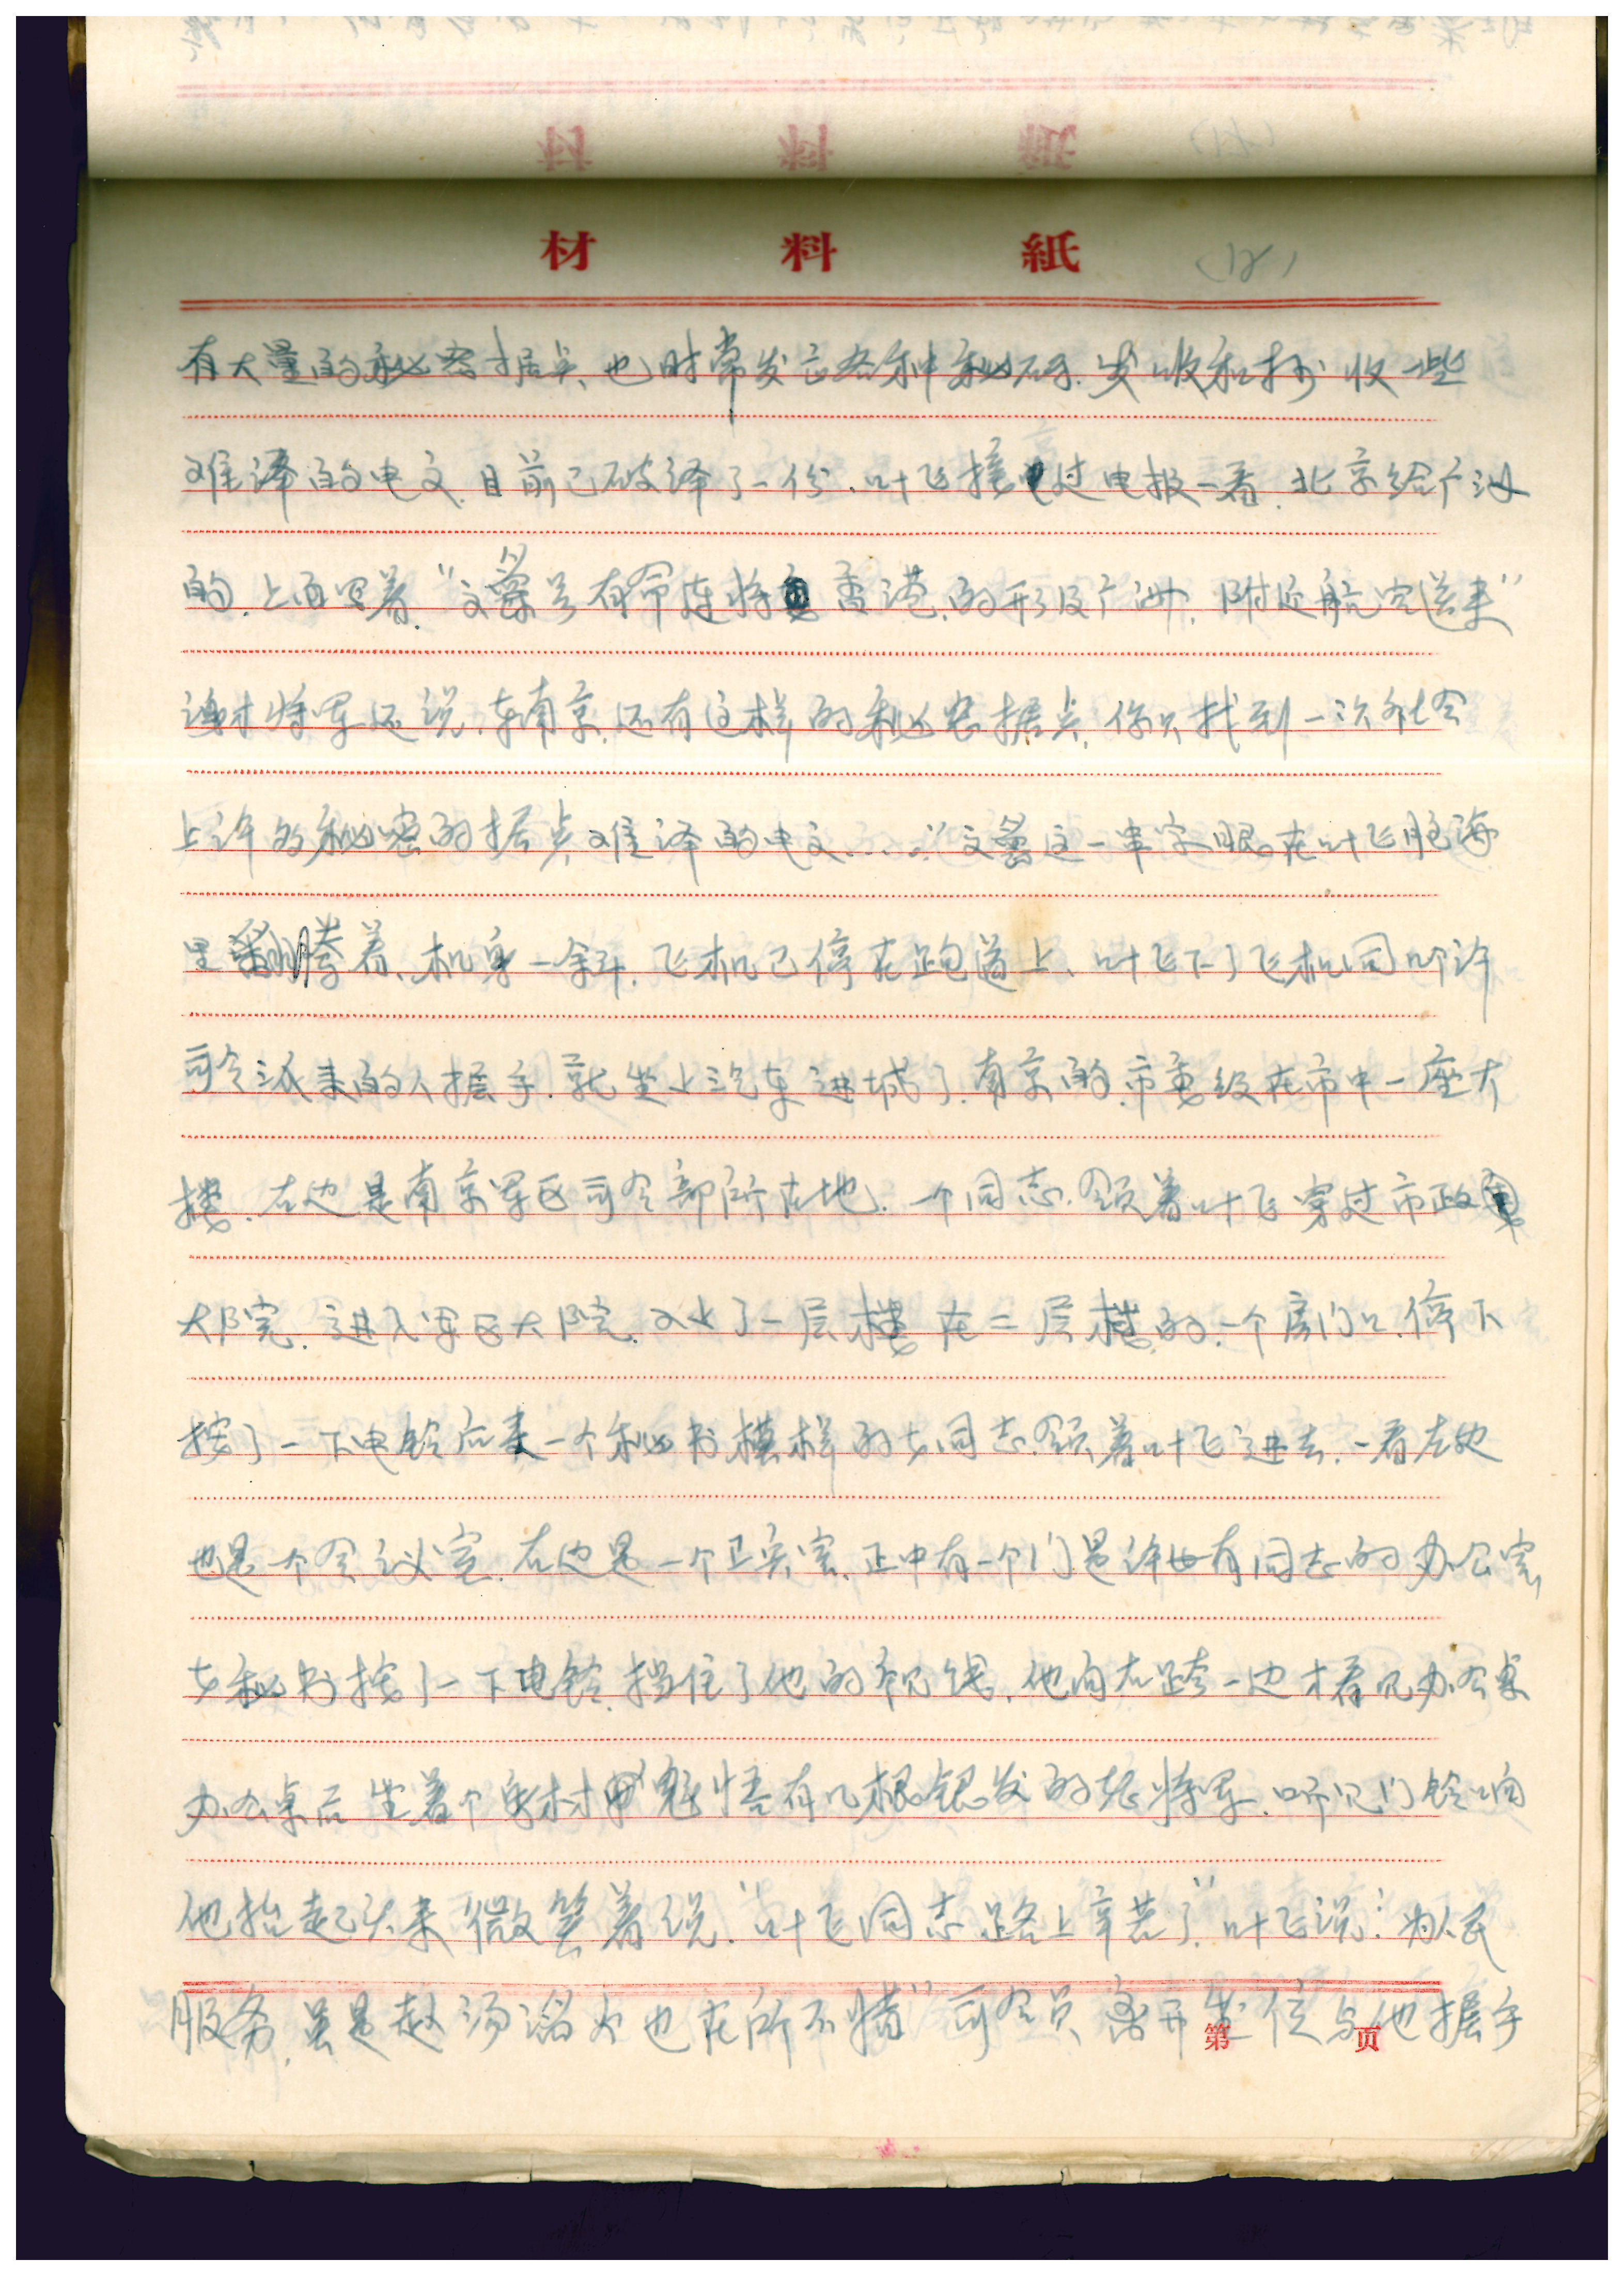 材料紙 (12)
有大量的秘密据点,也时常发亡各种秘码.发收和抄收一些
难译的电文.目前已破译了一份.叶飞接过电报一看.北京给广州
的.上面写着."文案号有命连将 香港.的形及广州.附近航空送来"
谢将军还说.在南京.还有这样的秘密据点.你只找到一次社会
上许多秘密的据点难译的电文....."文案这一串字眼在叶飞脑海
里翻腾着.机身一斜.飞机已停在跑道上.叶飞下了飞机同叩许
司令派来的人握手.就坐上汽车进城了.南京的.市委级在市中一座大
楼.右边是南京军区司令部所在地.一个同志.领着叶飞穿过市政
大院.进入军区大院.又上了一层楼在二层楼的.一个房门口.停下
按了一下电铃后来一个秘书模样的女同志.领着叶飞进去.一看左边
也是一个会议室.右边是一个卫兵室.正中有一个门是许世有同志的办公室
女秘书按了一下电铃.挡住了他的视线.他向右跨一边才看见办公桌
办公桌后坐着个身材魁悟有几根银发的老将军.听见门铃响
他抬起头来微笑着说."叶飞同志路上辛苦了."叶飞说:"为人民
服务.虽是赴汤滔火也在所不惜"司令员离开坐位与他握手
第 页